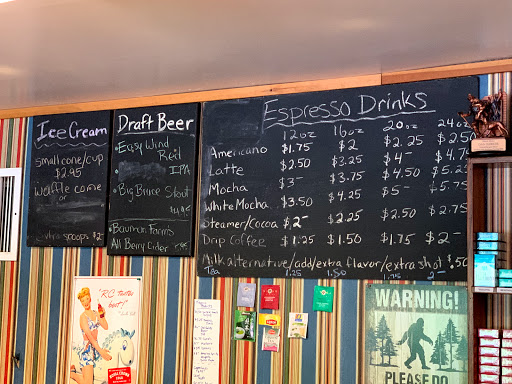 Ice Cream
small cone/cup
$2.95
waffle cone
or
extra scoops $2
Draft Beer
• Easy Wind
Red
IPA
• Big Bruce Stout
• Bauman Farms
All Berry Cider
Espresso Drinks
12oz 16oz 20oz 24oz
Americano $1.75 $2 $2.25 $2.50
Latte $2.50 $3.25 $4- $4.75
Mocha $3- $3.75 $4.50 $5.25
White Mocha $3.50 $4.25 $5- $5.75
Steamer/Cocoa $2- $2.25 $2.50 $2.75
Drip Coffee $1.25 $1.50 $1.75 $2-
Milk alternative/add/extra flavor/extra shot $.50
Tea 1.25 1.50 1.75 2-
"RC tastes
best!"
WARNING!
PLEASE DO